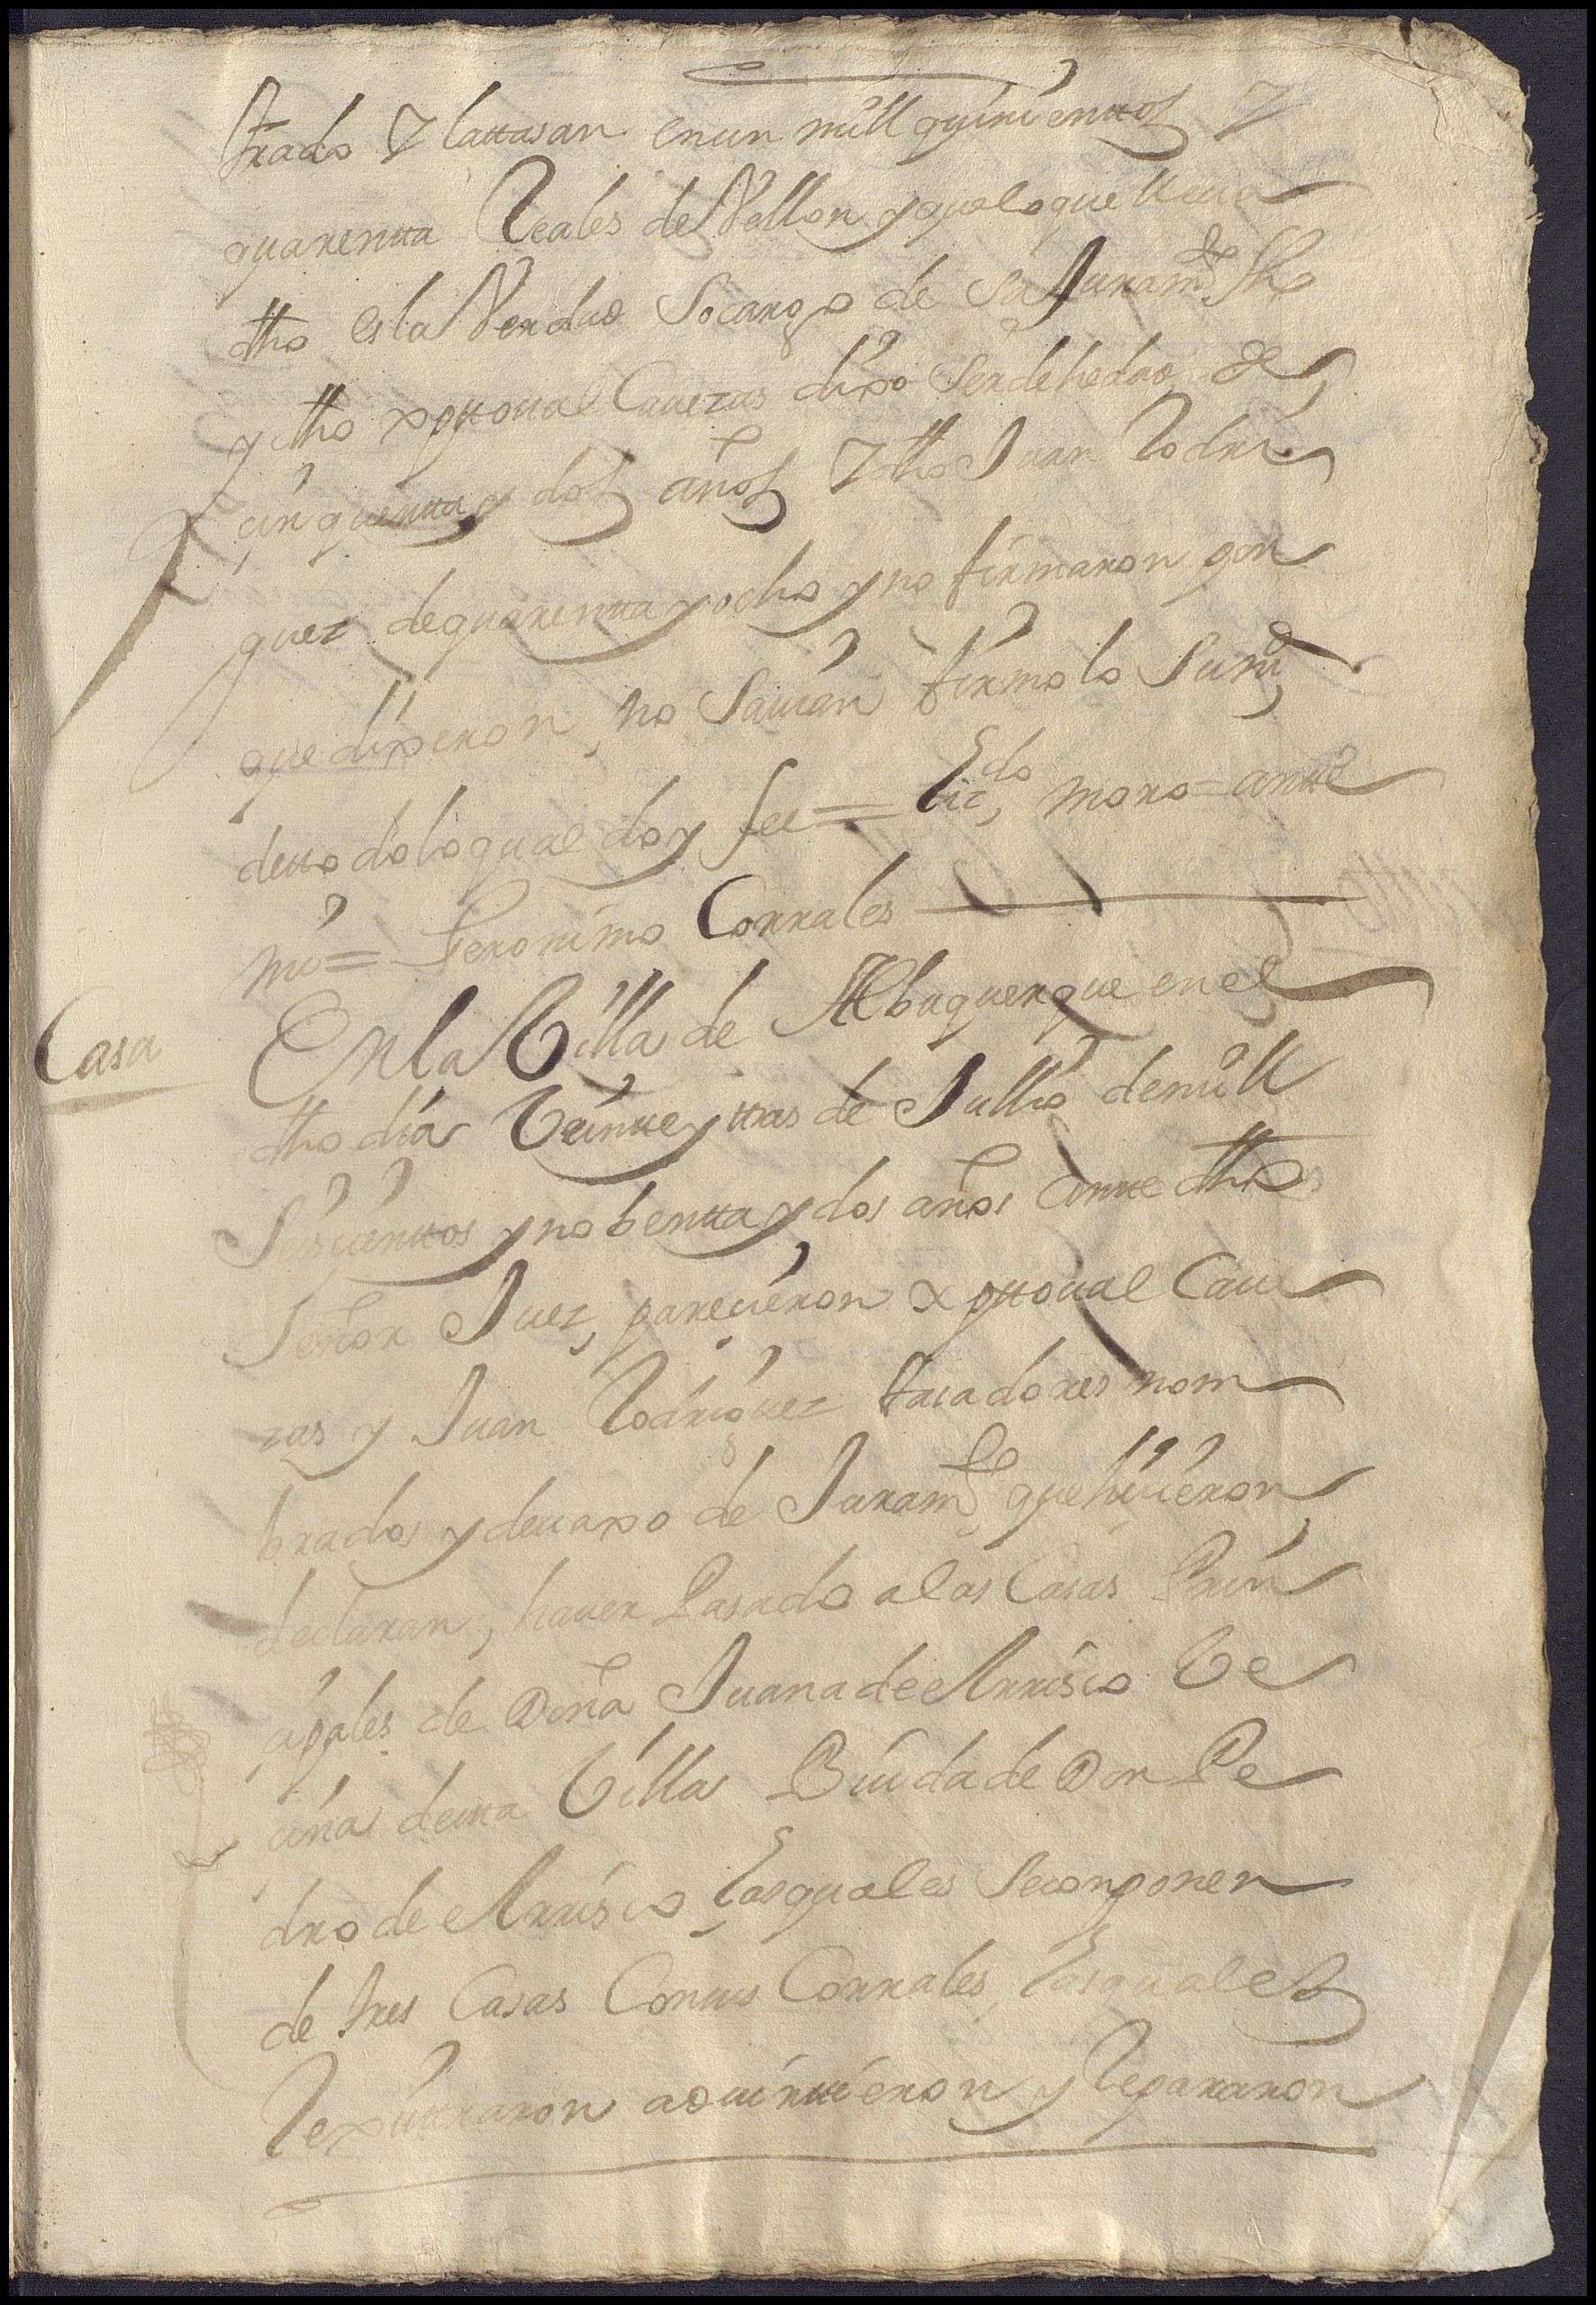 trado Y lattasan enun mill quinienttos Y
quarentta Reales de Vellon y que lo que lleua
dho es la Verdad So cargo de Su Juramto fho
y dho xpttoual Cauezas dixo Ser de hedad de
cinquentta y dos años Y dho Juan Rodri
guez de quarentta y ocho y no firmaron por
que dixeron no Sauian firmolo Sumd
de ttodo lo qual doy fee = Licdo, moro = antte
mi = Geronimo Corrales
Casa
En la Villa de Alburquerque en el
dho dia Veintte y ttres de Jullio de mill
Seiscienttos y nobentta y dos años Antte dho
Señor Juez, parecieron xpttoual Caue
zas y Juan Rodriguez tasadores nom
brados y deuaxo de Juramto que hicieron
declaran, hauer Pasado a las Casas Prin
cipales de Doña Juana de Arrisco Ve
cina de esta Villa Biuda de Don Pe
dro de Arrisco Las quales Se conponen
de tres Casas Con sus Corrales, Las quales
Rexisttraron aduirttieron y Repararon